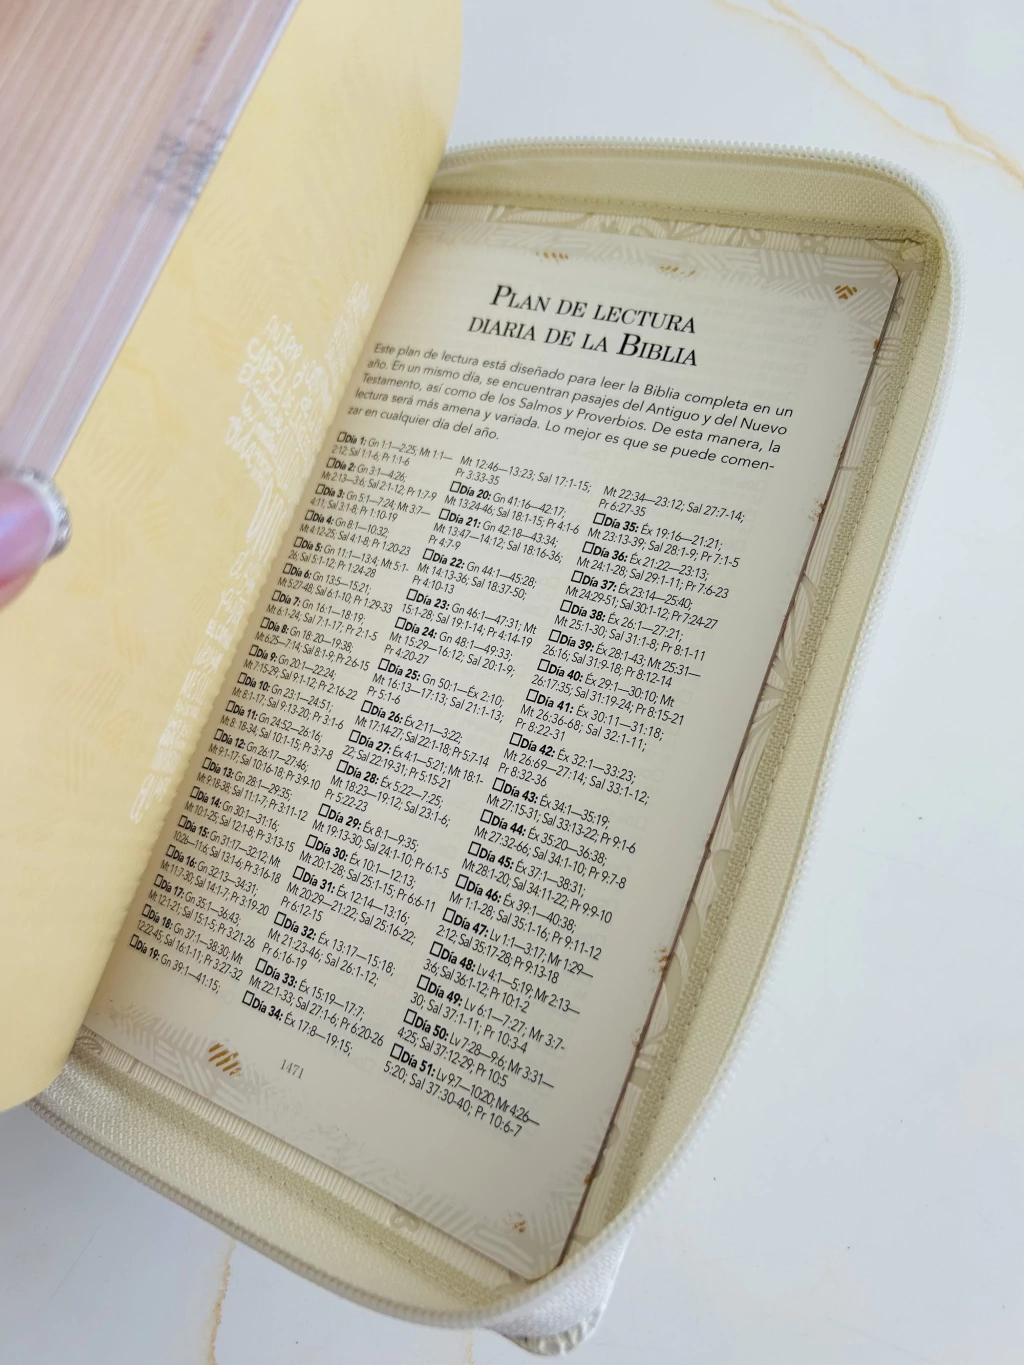 PLAN DE LECTURA
DIARIA DE LA BIBLIA
Este plan de lectura está diseñado para leer la Biblia completa en un
año. En un mismo día, se encuentran pasajes del Antiguo y del Nuevo
Testamento, así como de los Salmos y Proverbios. De esta manera, la
lectura será más amena y variada. Lo mejor es que se puede comen-
zar en cualquier día del año.
Día 1: Gn 1:1—2:25; Mt 1:1—
2:12; Sal 1:1-6; Pr 1:1-6
Día 2: Gn 3:1—4:26;
Mt 2:13—3:6; Sal 2:1-12; Pr 1:7-9
Día 3: Gn 5:1—7:24; Mt 3:7—
4:11; Sal 3:1-8; Pr 1:10-19
Día 4: Gn 8:1—10:32;
Mt 4:12-25; Sal 4:1-8; Pr 1:20-23
Día 5: Gn 11:1—13:4; Mt 5:1-
26; Sal 5:1-12; Pr 1:24-28
Día 6: Gn 13:5—15:21;
Mt 5:27-48; Sal 6:1-10; Pr 1:29-33
Día 7: Gn 16:1—18:19;
Mt 6:1-24; Sal 7:1-17; Pr 2:1-5
Día 8: Gn 18:20—19:38;
Mt 6:25—7:14; Sal 8:1-9; Pr 2:6-15
Día 9: Gn 20:1—22:24;
Mt 7:15-29; Sal 9:1-12; Pr 2:16-22
Día 10: Gn 23:1—24:51;
Mt 8:1-17; Sal 9:13-20; Pr 3:1-6
Día 11: Gn 24:52—26:16;
Mt 8: 18-34; Sal 10:1-15; Pr 3:7-8
Día 12: Gn 26:17—27:46;
Mt 9:1-17; Sal 10:16-18; Pr 3:9-10
Día 13: Gn 28:1—29:35;
Mt 9:18-38; Sal 11:1-7; Pr 3:11-12
Día 14: Gn 30:1—31:16;
Mt 10:1-25; Sal 12:1-8; Pr 3:13-15
Día 15: Gn 31:17—32:12; Mt
10:26—11:6; Sal 13:1-6; Pr 3:16-18
Día 16: Gn 32:13—34:31;
Mt 11:7-30; Sal 14:1-7; Pr 3:19-20
Día 17: Gn 35:1—36:43;
Mt 12:1-21; Sal 15:1-5; Pr 3:21-26
Día 18: Gn 37:1—38:30; Mt
12:22-45; Sal 16:1-11; Pr 3:27-32
Día 19: Gn 39:1—41:15;
Mt 12:46—13:23; Sal 17:1-15;
Pr 3:33-35
Día 20: Gn 41:16—42:17;
Mt 13:24-46; Sal 18:1-15; Pr 4:1-6
Día 21: Gn 42:18—43:34;
Mt 13:47—14:12; Sal 18:16-36;
Pr 4:7-9
Día 22: Gn 44:1—45:28;
Mt 14:13-36; Sal 18:37-50;
Pr 4:10-13
Día 23: Gn 46:1—47:31; Mt
15:1-28; Sal 19:1-14; Pr 4:14-19
Día 24: Gn 48:1—49:33;
Mt 15:29—16:12; Sal 20:1-9;
Pr 4:20-27
Día 25: Gn 50:1—Éx 2:10;
Mt 16:13—17:13; Sal 21:1-13;
Pr 5:1-6
Día 26: Éx 2:11—3:22;
Mt 17:14-27; Sal 22:1-18; Pr 5:7-14
Día 27: Éx 4:1—5:21; Mt 18:1-
22; Sal 22:19-31; Pr 5:15-21
Día 28: Éx 5:22—7:25;
Mt 18:23—19:12; Sal 23:1-6;
Pr 5:22-23
Día 29: Éx 8:1—9:35;
Mt 19:13-30; Sal 24:1-10; Pr 6:1-5
Día 30: Éx 10:1—12:13;
Mt 20:1-28; Sal 25:1-15; Pr 6:6-11
Día 31: Éx 12:14—13:16;
Mt 20:29—21:22; Sal 25:16-22;
Pr 6:12-15
Día 32: Éx 13:17—15:18;
Mt 21:23-46; Sal 26:1-12;
Pr 6:16-19
Día 33: Éx 15:19—17:7;
Mt 22:1-33; Sal 27:1-6; Pr 6:20-26
Día 34: Éx 17:8—19:15;
Mt 22:34—23:12; Sal 27:7-14;
Pr 6:27-35
Día 35: Éx 19:16—21:21;
Mt 23:13-39; Sal 28:1-9; Pr 7:1-5
Día 36: Éx 21:22—23:13;
Mt 24:1-28; Sal 29:1-11; Pr 7:6-23
Día 37: Éx 23:14—25:40;
Mt 24:29-51; Sal 30:1-12; Pr 7:24-27
Día 38: Éx 26:1—27:21;
Mt 25:1-30; Sal 31:1-8; Pr 8:1-11
Día 39: Éx 28:1-43; Mt 25:31—
26:16; Sal 31:9-18; Pr 8:12-14
Día 40: Éx 29:1—30:10; Mt
26:17:35; Sal 31:19-24; Pr 8:15-21
Día 41: Éx 30:11—31:18;
Mt 26:36-68; Sal 32:1-11;
Pr 8:22-31
Día 42: Éx 32:1—33:23;
Mt 26:69—27:14; Sal 33:1-12;
Pr 8:32-36
Día 43: Éx 34:1—35:19;
Mt 27:15-31; Sal 33:13-22; Pr 9:1-6
Día 44: Éx 35:20—36:38;
Mt 27:32-66; Sal 34:1-10; Pr 9:7-8
Día 45: Éx 37:1—38:31;
Mt 28:1-20; Sal 34:11-22; Pr 9:9-10
Día 46: Éx 39:1—40:38;
Mr 1:1-28; Sal 35:1-16; Pr 9:11-12
Día 47: Lv 1:1—3:17; Mr 1:29—
2:12; Sal 35:17-28; Pr 9:13-18
Día 48: Lv 4:1—5:19; Mr 2:13—
3:6; Sal 36:1-12; Pr 10:1-2
Día 49: Lv 6:1—7:27; Mr 3:7-
30; Sal 37:1-11; Pr 10:3-4
Día 50: Lv 7:28—9:6; Mr 3:31—
4:25; Sal 37:12-29; Pr 10:5
Día 51: Lv 9:7—10:20; Mr 4:26—
5:20; Sal 37:30-40; Pr 10:6-7
1471